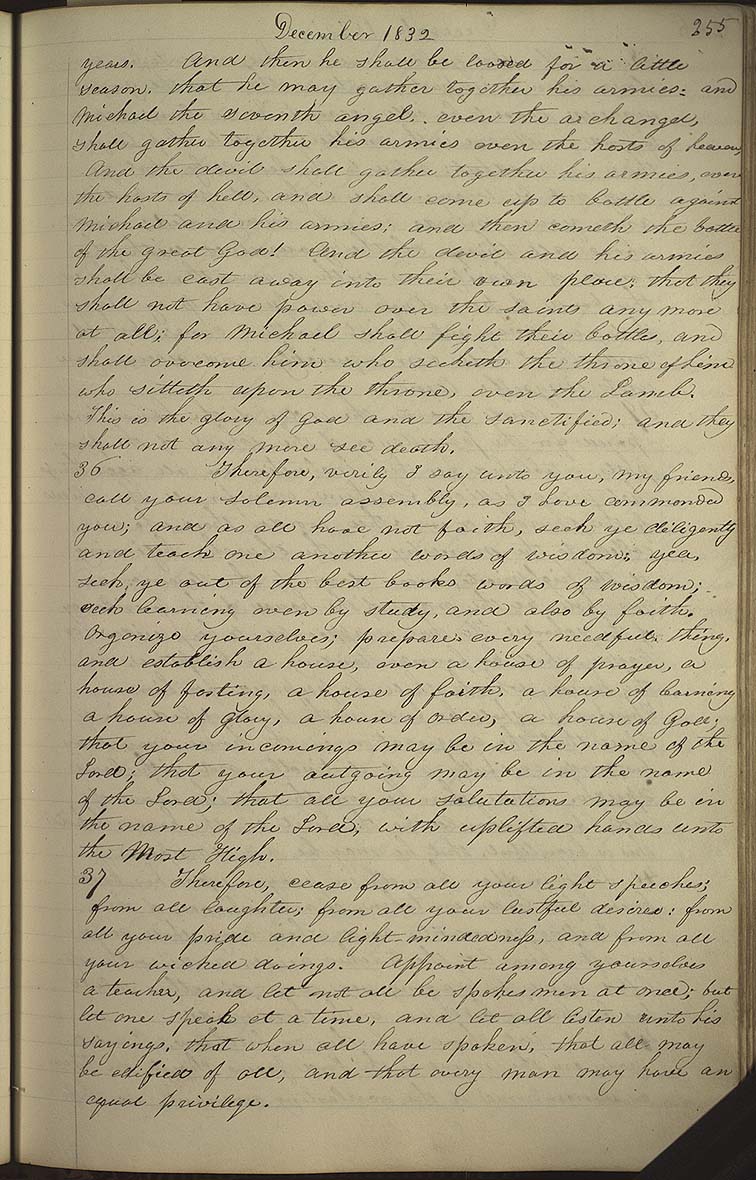 December 1832
255
years. And then he shall be loosed for a little
season. that he may gather together his armies: and
Michael the seventh angel. even the archangel,
shall gather together his armies even the hosts of heaven,
And the devil shall gather together his armies, even
the hosts of hell, and shall come up to battle against
Michael and his armies; and then cometh the battle
of the great God! And the devil and his armies
shall be cast away into their own place; that they
shall not have power over the saints any more
at all; for Michael shall fight their battles, and
shall overcome him who seeketh the throne of him
who sitteth upon the throne, even the Lamb.
This is the glory of God and the sanctified; and they
shall not any more see death.
36 Therefore, verily I say unto you, my friends,
call your solemn assembly, as I have commanded
you; and as all have not faith, seek ye deligently
and teach one another words of wisdom; yea,
seek, ye out of the best books words of wisdom;
seek learning even by study, and also by faith.
Organize yourselves; prepare every needful thing,
and establish a house, even a house of prayer, a
house of fasting, a house of faith, a house of learning
a house of glory, a house of order, a house of God;
that your incomings may be in the name of the
Lord; that your outgoing may be in the name
of the Lord; that all your salutations may be in
the name of the Lord, with uplifted hands unto
the Most High.
37 Therefore, cease from all your light speeches;
from all laughter; from all your lustful desires: from
all your pride and light-mindedness, and from all
your wicked doings. Appoint among yourselves
a teacher, and let not all be spokesmen at once; but
let one speak at a time, and let all listen unto his
sayings, that when all have spoken, that all may
be edified of all, and that every man may have an
equal privilege.